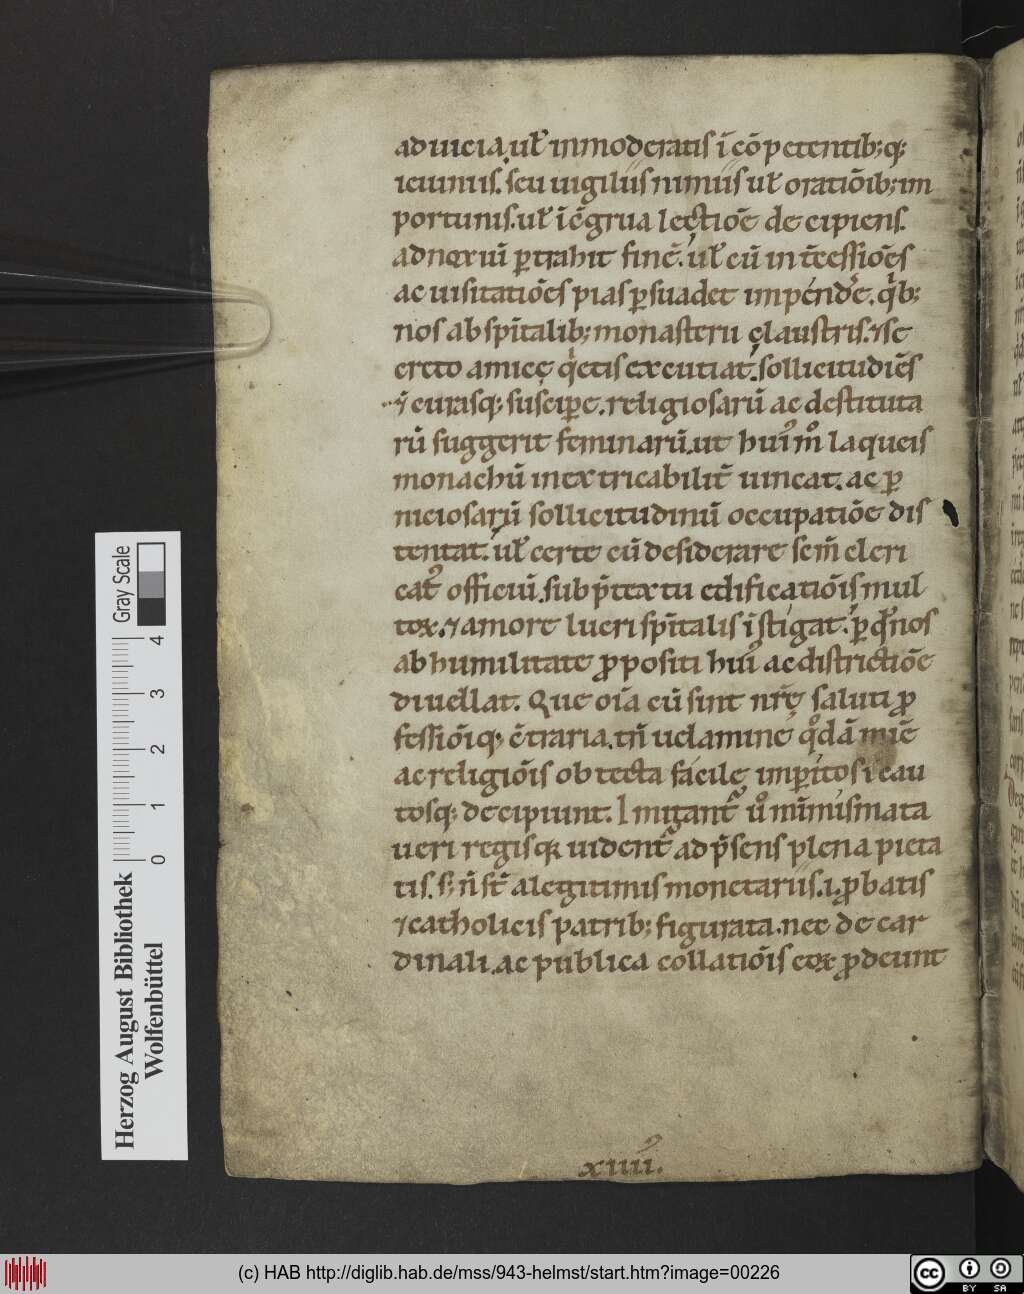 ad uicia. ul̄ inmoderatis ī cōpetentib; q;
ieiuniis. seu uigiliis nimiis ul̄ oratiōib; im
portunis. ul̄ īc̄grua lectiōe decipiens.
ad noxiū ꝑtrahit finē. ul̄ cū int̄cessiōes
ac uisitatiōes pias ꝑsuadet impendēe. q̄b;
nos ab spīitalib; monasterii claustris. ⁊ se
creto amicę q̇etis excutiat. sollicitudiēs
⁊ curasq; suscipe͛. religiosarū ac destituta
rū suggerit feminarū. ut huiꝰmͦ laqueis
monachū inextricabilit̄ uincat. ac ꝑ
niciosarū sollicitudinū occupatiōe dis
tentat. ul̄ certe cū desiderare sem̄ cleri
catꝰ officiū. sub p̄textu edificatiōis mul
tox. ⁊ amore lucri spīitalis īstigat. ꝑ q̄ nos
ab humilitate ꝓpositi huiꝰ ac districtiōe
diuellat. Que oīa cū sint nr̄ę saluti ꝓ
fessiōiq; c̄traria. tn̄ uelamine qͦdā mīe
ac religiōis obtecta facile imꝑitos īcau
tosq; decipiunt. Imitant᷑ uͦ numismata
ueri regis q; uident᷑ ad p̄sens plena pieta
tis. s; n̄ st̄ a legitimis monetariis. i. ꝓbatis
⁊ catholicis patrib; figurata. nec de car
dinali. ac publica collatiōis eox ꝓdeunt
xiiii.
Herzog August Bibliothek
Wolfenbüttel
Gray Scale
0 1 2 3 4
(c) HAB http://diglib.hab.de/mss/943-helmst/start.htm?image=00226
cc BY SA